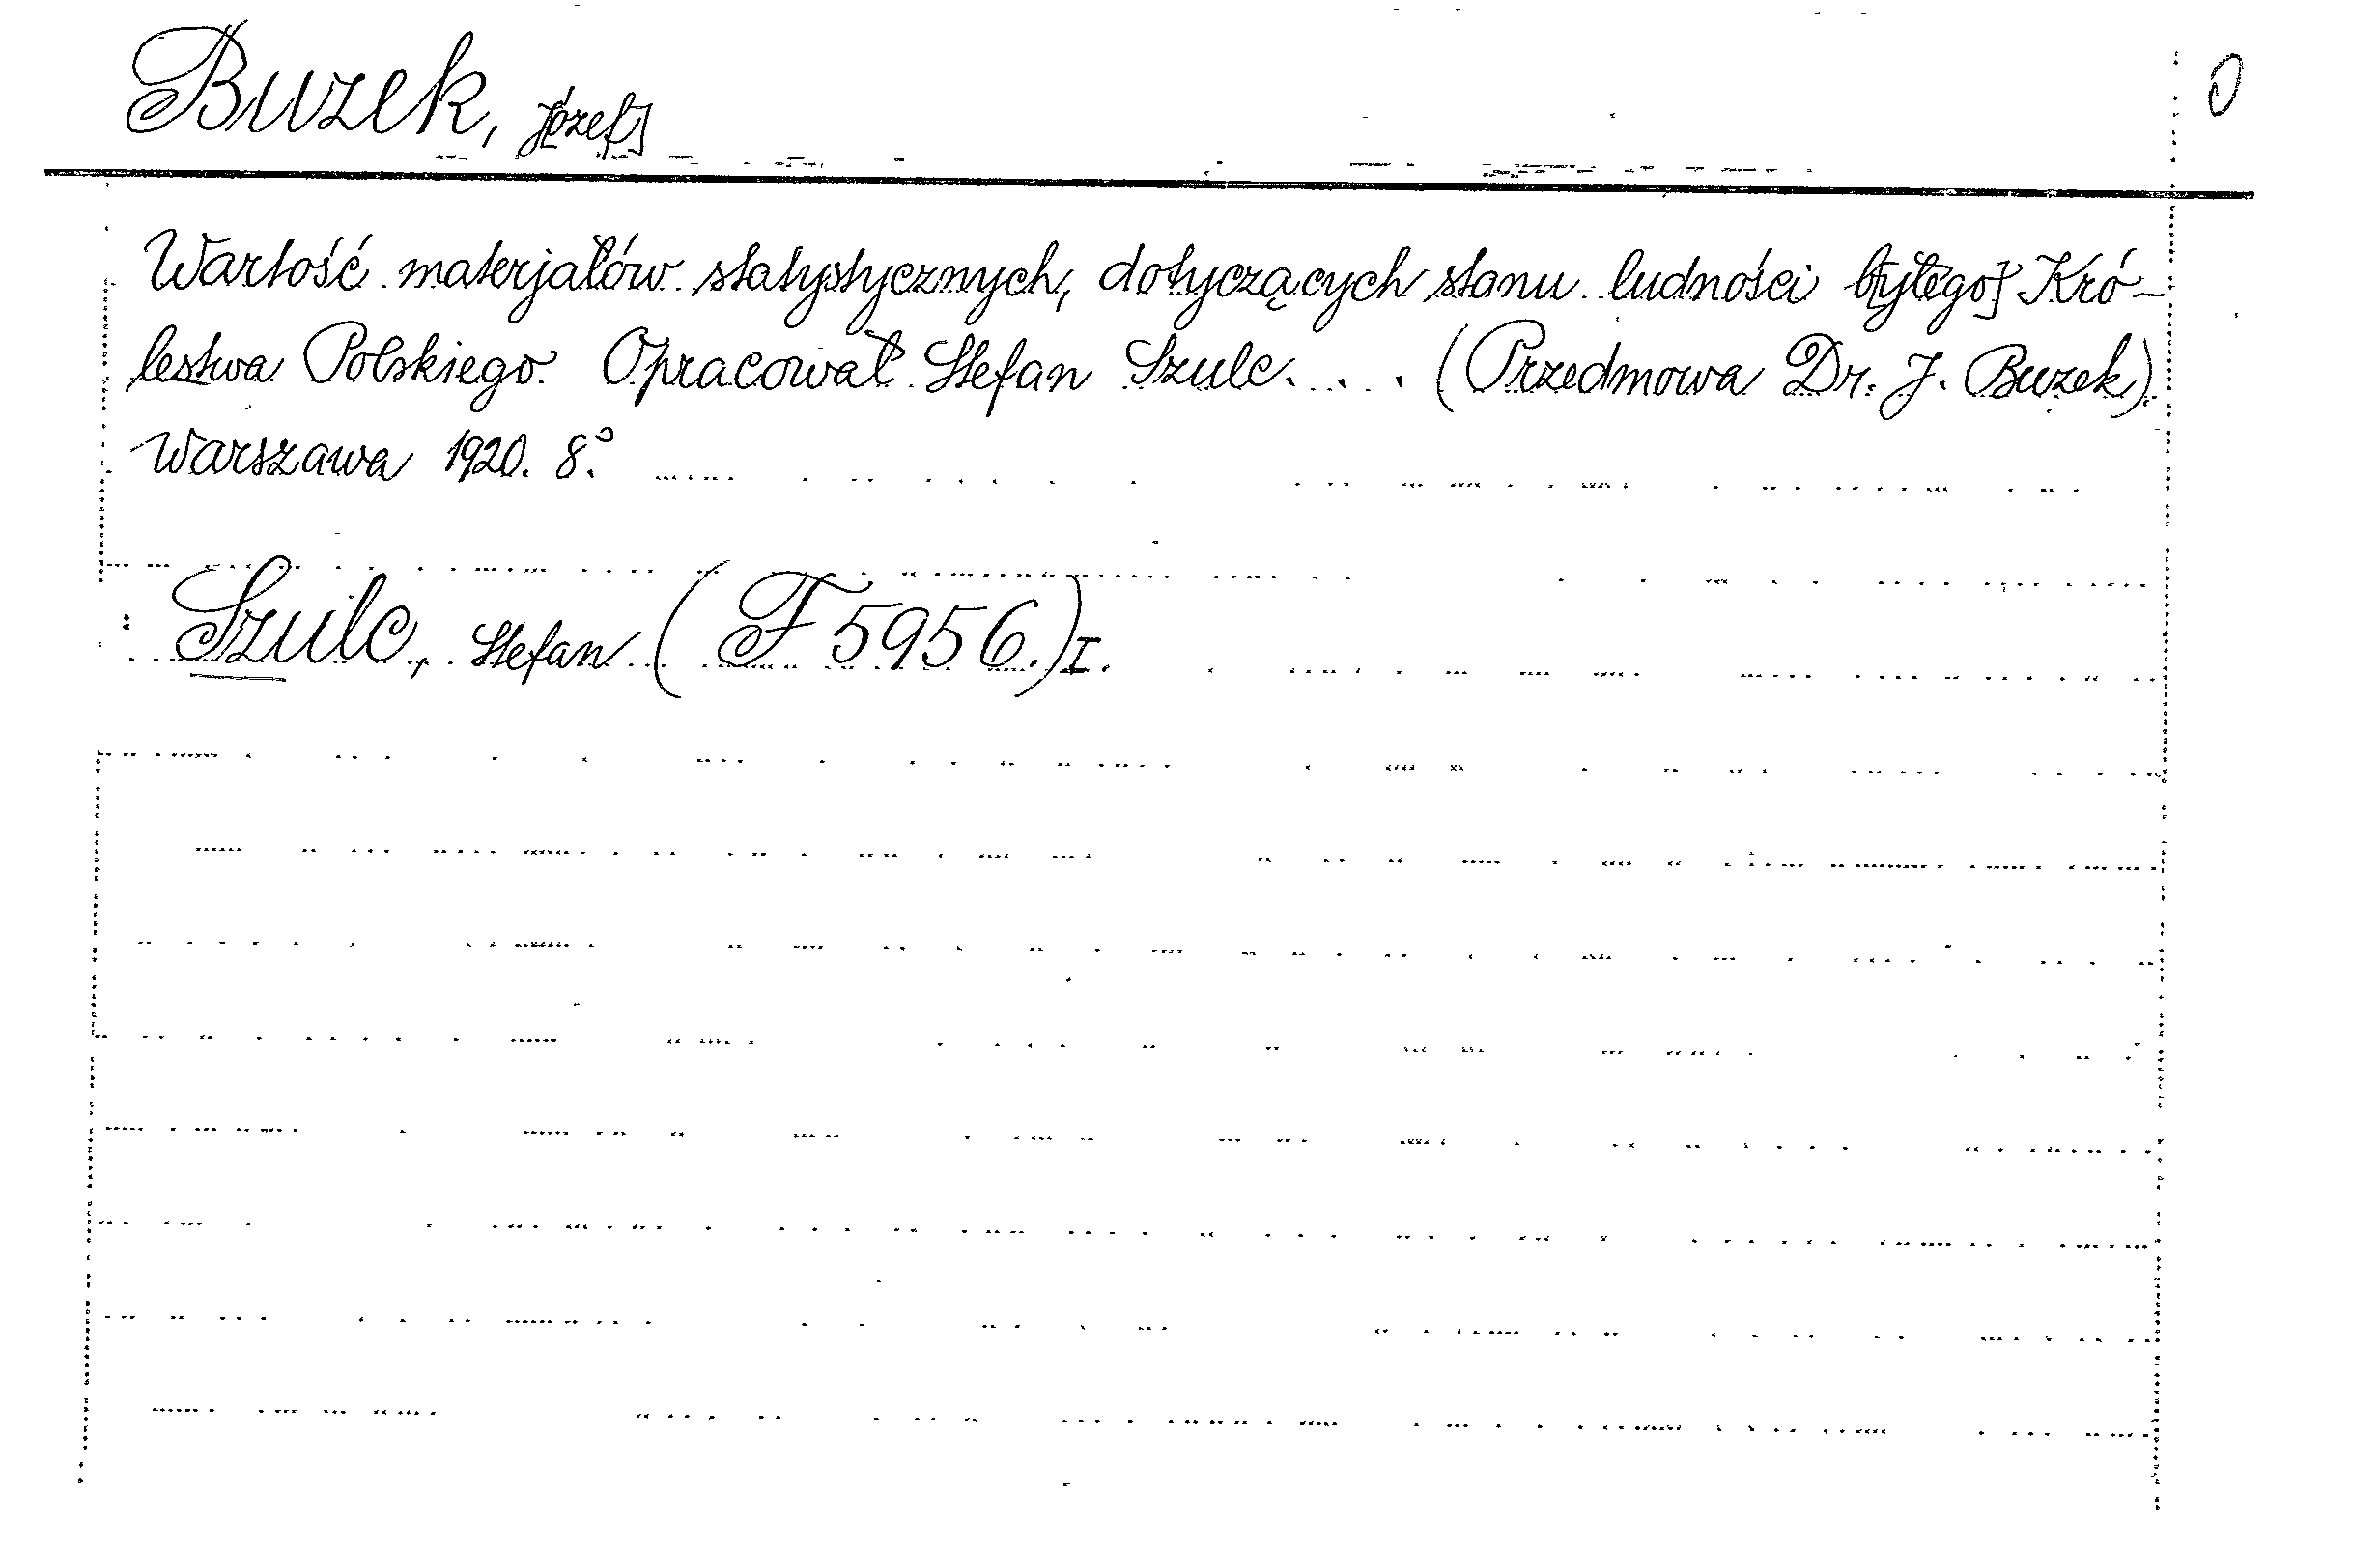 Buzek, J[ózef] 0
Wartość materjałów statystycznych, dotyczących stanu ludności b[yłego] Kró-
lestwa Polskiego. Opracował Stefan Szulc. . . (Przedmowa Dr. J. Buzek).
Warszawa 1920. 8.°
Szulc, Stefan (F 5956.) I.